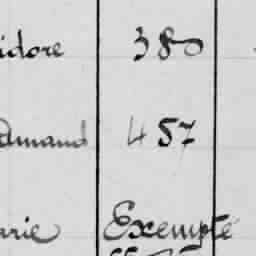 idore 380
amand 457
rie Exempté